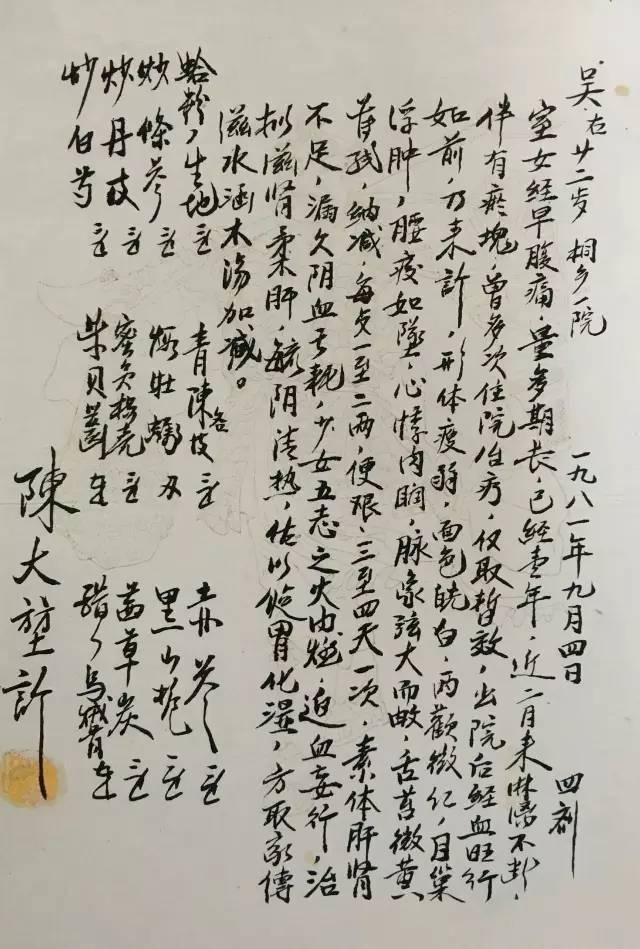 吴右 廿二岁 桐乡一院 一九八一年九月四日 四剂
室女经早腹痛，量多期长，已经壹年，近二月来淋漓不断，
伴有瘀塊，曾多次住院治疗，仅取暂效，出院后经血旺行
如前，乃来診，形体疲弱，面色㿠白，两颧微红，目窠
浮肿，腰痠如墜，心悸肉瞤，脉象弦大而芤，舌苔微黄
苔残，納减，每歺一至二两，便艰，三至四天一次，素体肝肾
不足，漏久阴血亏耗，少女五志之火内燃，迫血妄行，治
拟滋肾柔肝，毓阴清热，佐以飽胃化濕，方取家傳
滋水涵木湯加减。
蛤粉ノ生地 青陳各
炒條芩 煅牡蠣
炒丹皮 蜜炙
炒白芍 紫貝齒
赤芩
黑山栀
茜草炭
醋ノ烏賊骨
陳大堃診